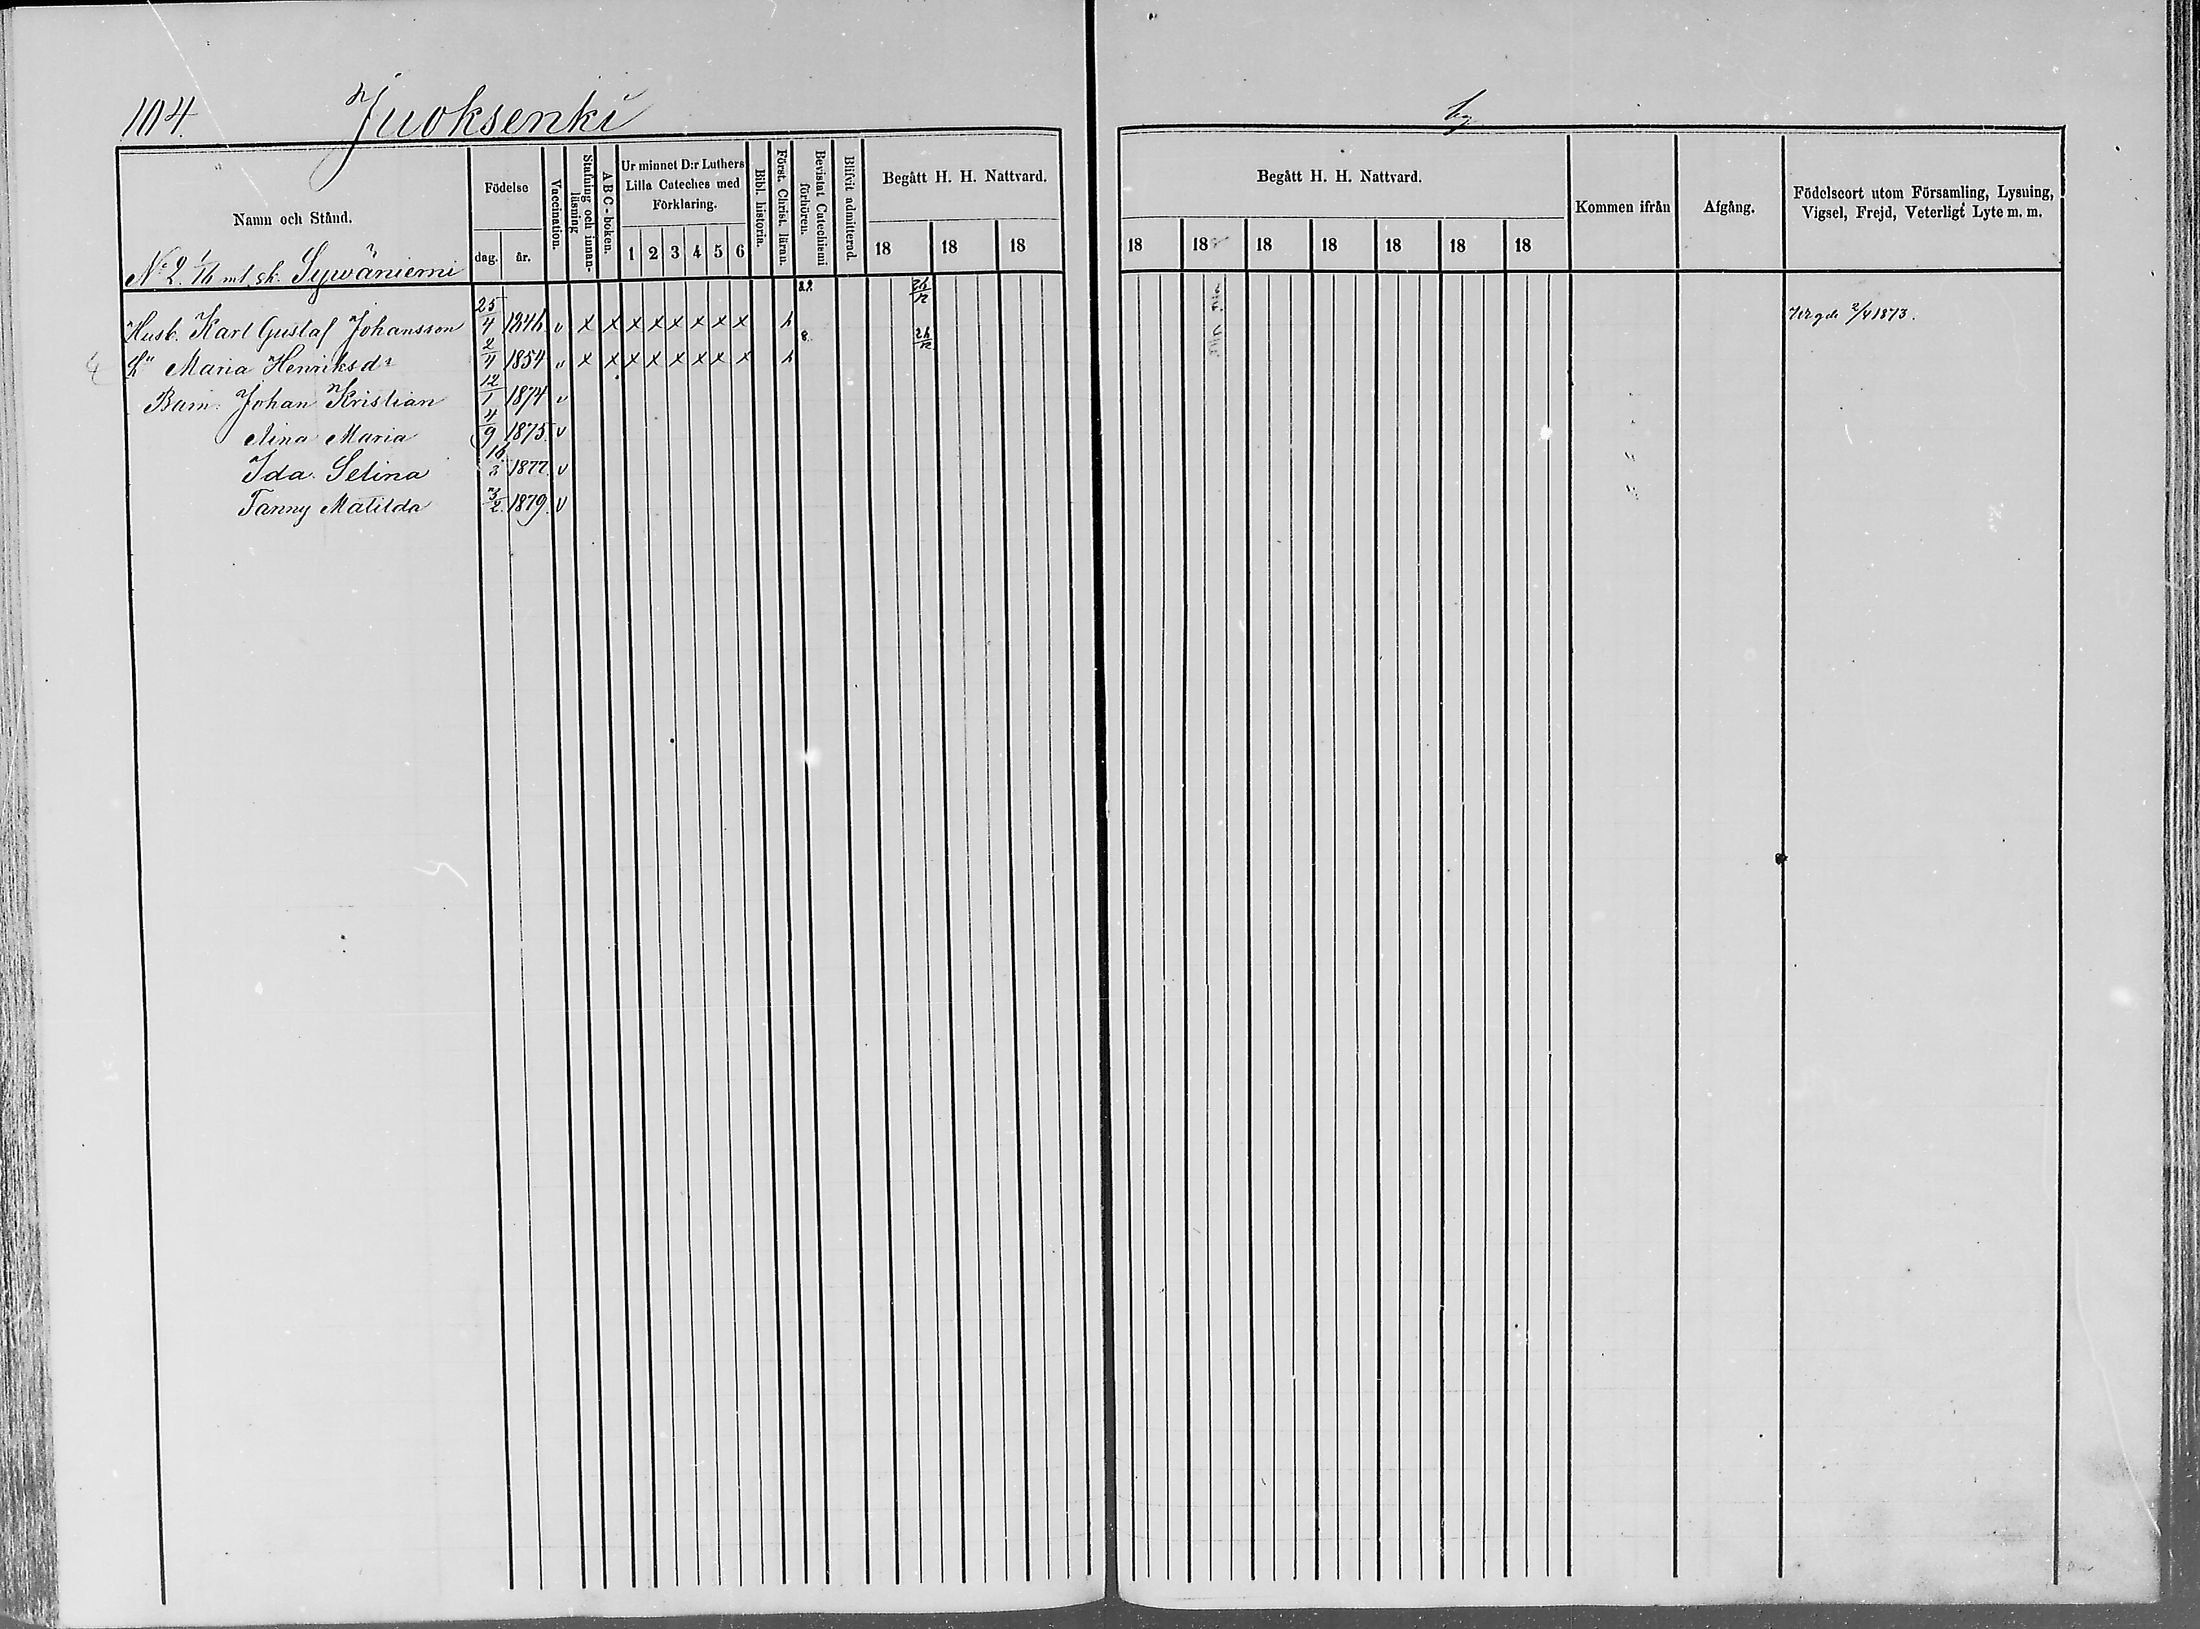 104. Juoksenki by
Namn och Stånd.
Födelse
dag. år.
Vaccination.
Stafning och innan-läsning
A B C - boken.
Ur minnet D:r Luthers Lilla Cateches med Förklaring.
1 2 3 4 5 6
Bibl. historia.
Först. Christ. läran.
Bevistat Catechismi förhören.
Blifvit admitterad.
Begått H. H. Nattvard.
18 18 18
Begått H. H. Nattvard.
18 18 18 18 18 18 18
Kommen ifrån
Afgång.
Födelseort utom Församling, Lysning, Vigsel, Frejd, Veterligt Lyte m. m.
No 2. 1/16 mt sk. Sywäniemi
Husb. Karl Gustaf Johansson 25/4 1846 v x x x x x x x x 26/12 Vigde 2/4 1873.
H" Maria Henriksdr 2/4 1854 v x x x x x x x x 8. 26/12
Barn: Johan Kristian 12/1 1874 v
Aina Maria 4/9 1875. v
Ida Selina 16/3 1877. v
Fanny Matilda 3/2 1879. v